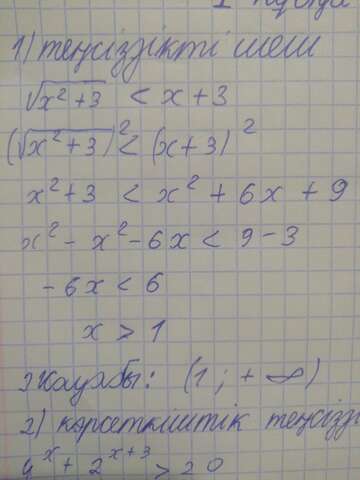 1) теңсіздікті шеш
√x²+3 < x+3
(√x²+3)² < (x+3)²
x²+3 < x² + 6x + 9
x² - x² - 6x < 9-3
- 6x < 6
x > 1
Жауабы: (1; + ∞)
2) көрсеткіштік теңсізді
4^x + 2^x+3 > 20